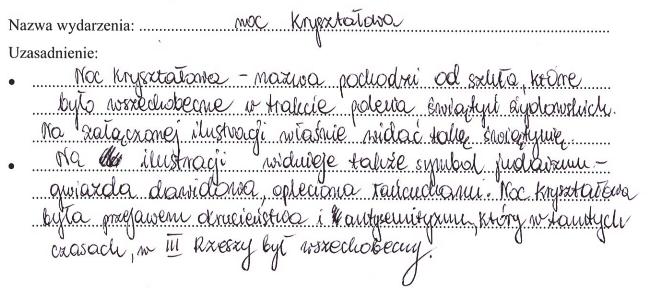 Nazwa wydarzenia: noc Kryształowa
Uzasadnienie:
• Noc Kryształowa – nazwa pochodzi od szkła, które
było wszechobecne w trakcie palenia świątyń żydowskich.
Na załączonej ilustracji właśnie widać taką świątynię
• Na ilustracji widnieje także symbol judaizmu –
gwiazda dawidowa, opleciona łańcuchami. Noc Kryształowa
była przejawem okrucieństwa i antysemityzmu, który w tamtych
czasach, w III Rzeszy był wszechobecny.